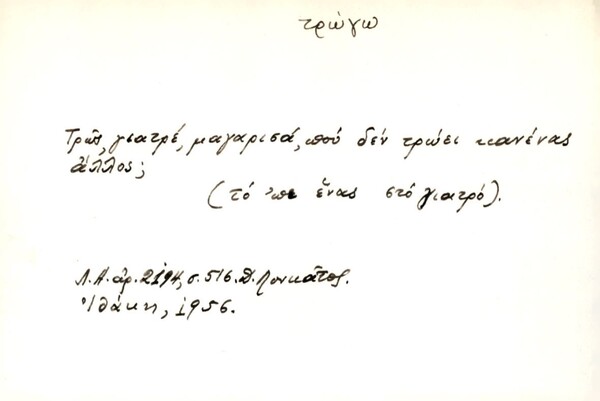 τρώγω
Τρῶς, γιατρέ, μαγαρισά, πού δέν τρώει κανένας
ἄλλος;
(τό 'πε ἕνας στό γιατρό).
Λ.Α. ἀρ. 2194, σ. 516. Δ. Λουκᾶτος.
Ἰθάκη, 1956.